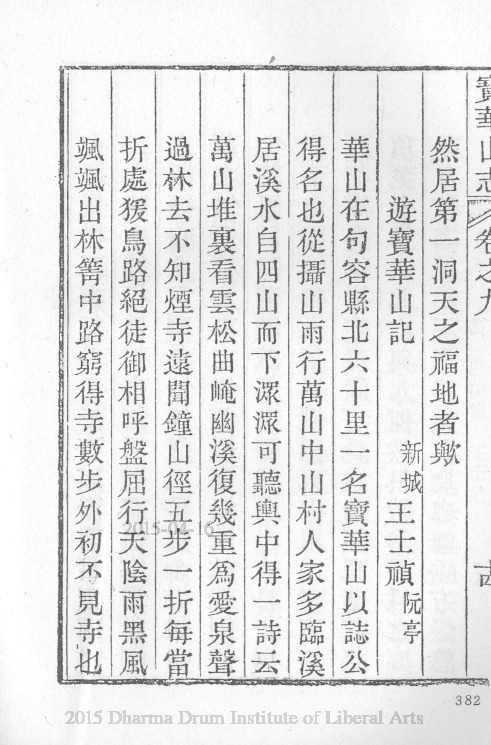 寶華山志
卷之九
然居第一洞天之福地者歟
遊寶華山記
新城王士禎阮亭
華山在句容縣北六十里一名寶華山以誌公
得名也從攝山雨行萬山中山村人家多臨溪
居溪水自四山而下潀潀可聽輿中得一詩云
萬山堆裏看雲松曲崦幽溪復幾重爲愛泉聲
過林去不知煙寺遠聞鐘山徑五步一折每當
折處猨鳥路絕徒御相呼盤屈行天陰雨黑風
颯颯出林箐中路窮得寺數步外初不見寺也
382
2015-04-16
2015 Dharma Drum Institute of Liberal Arts